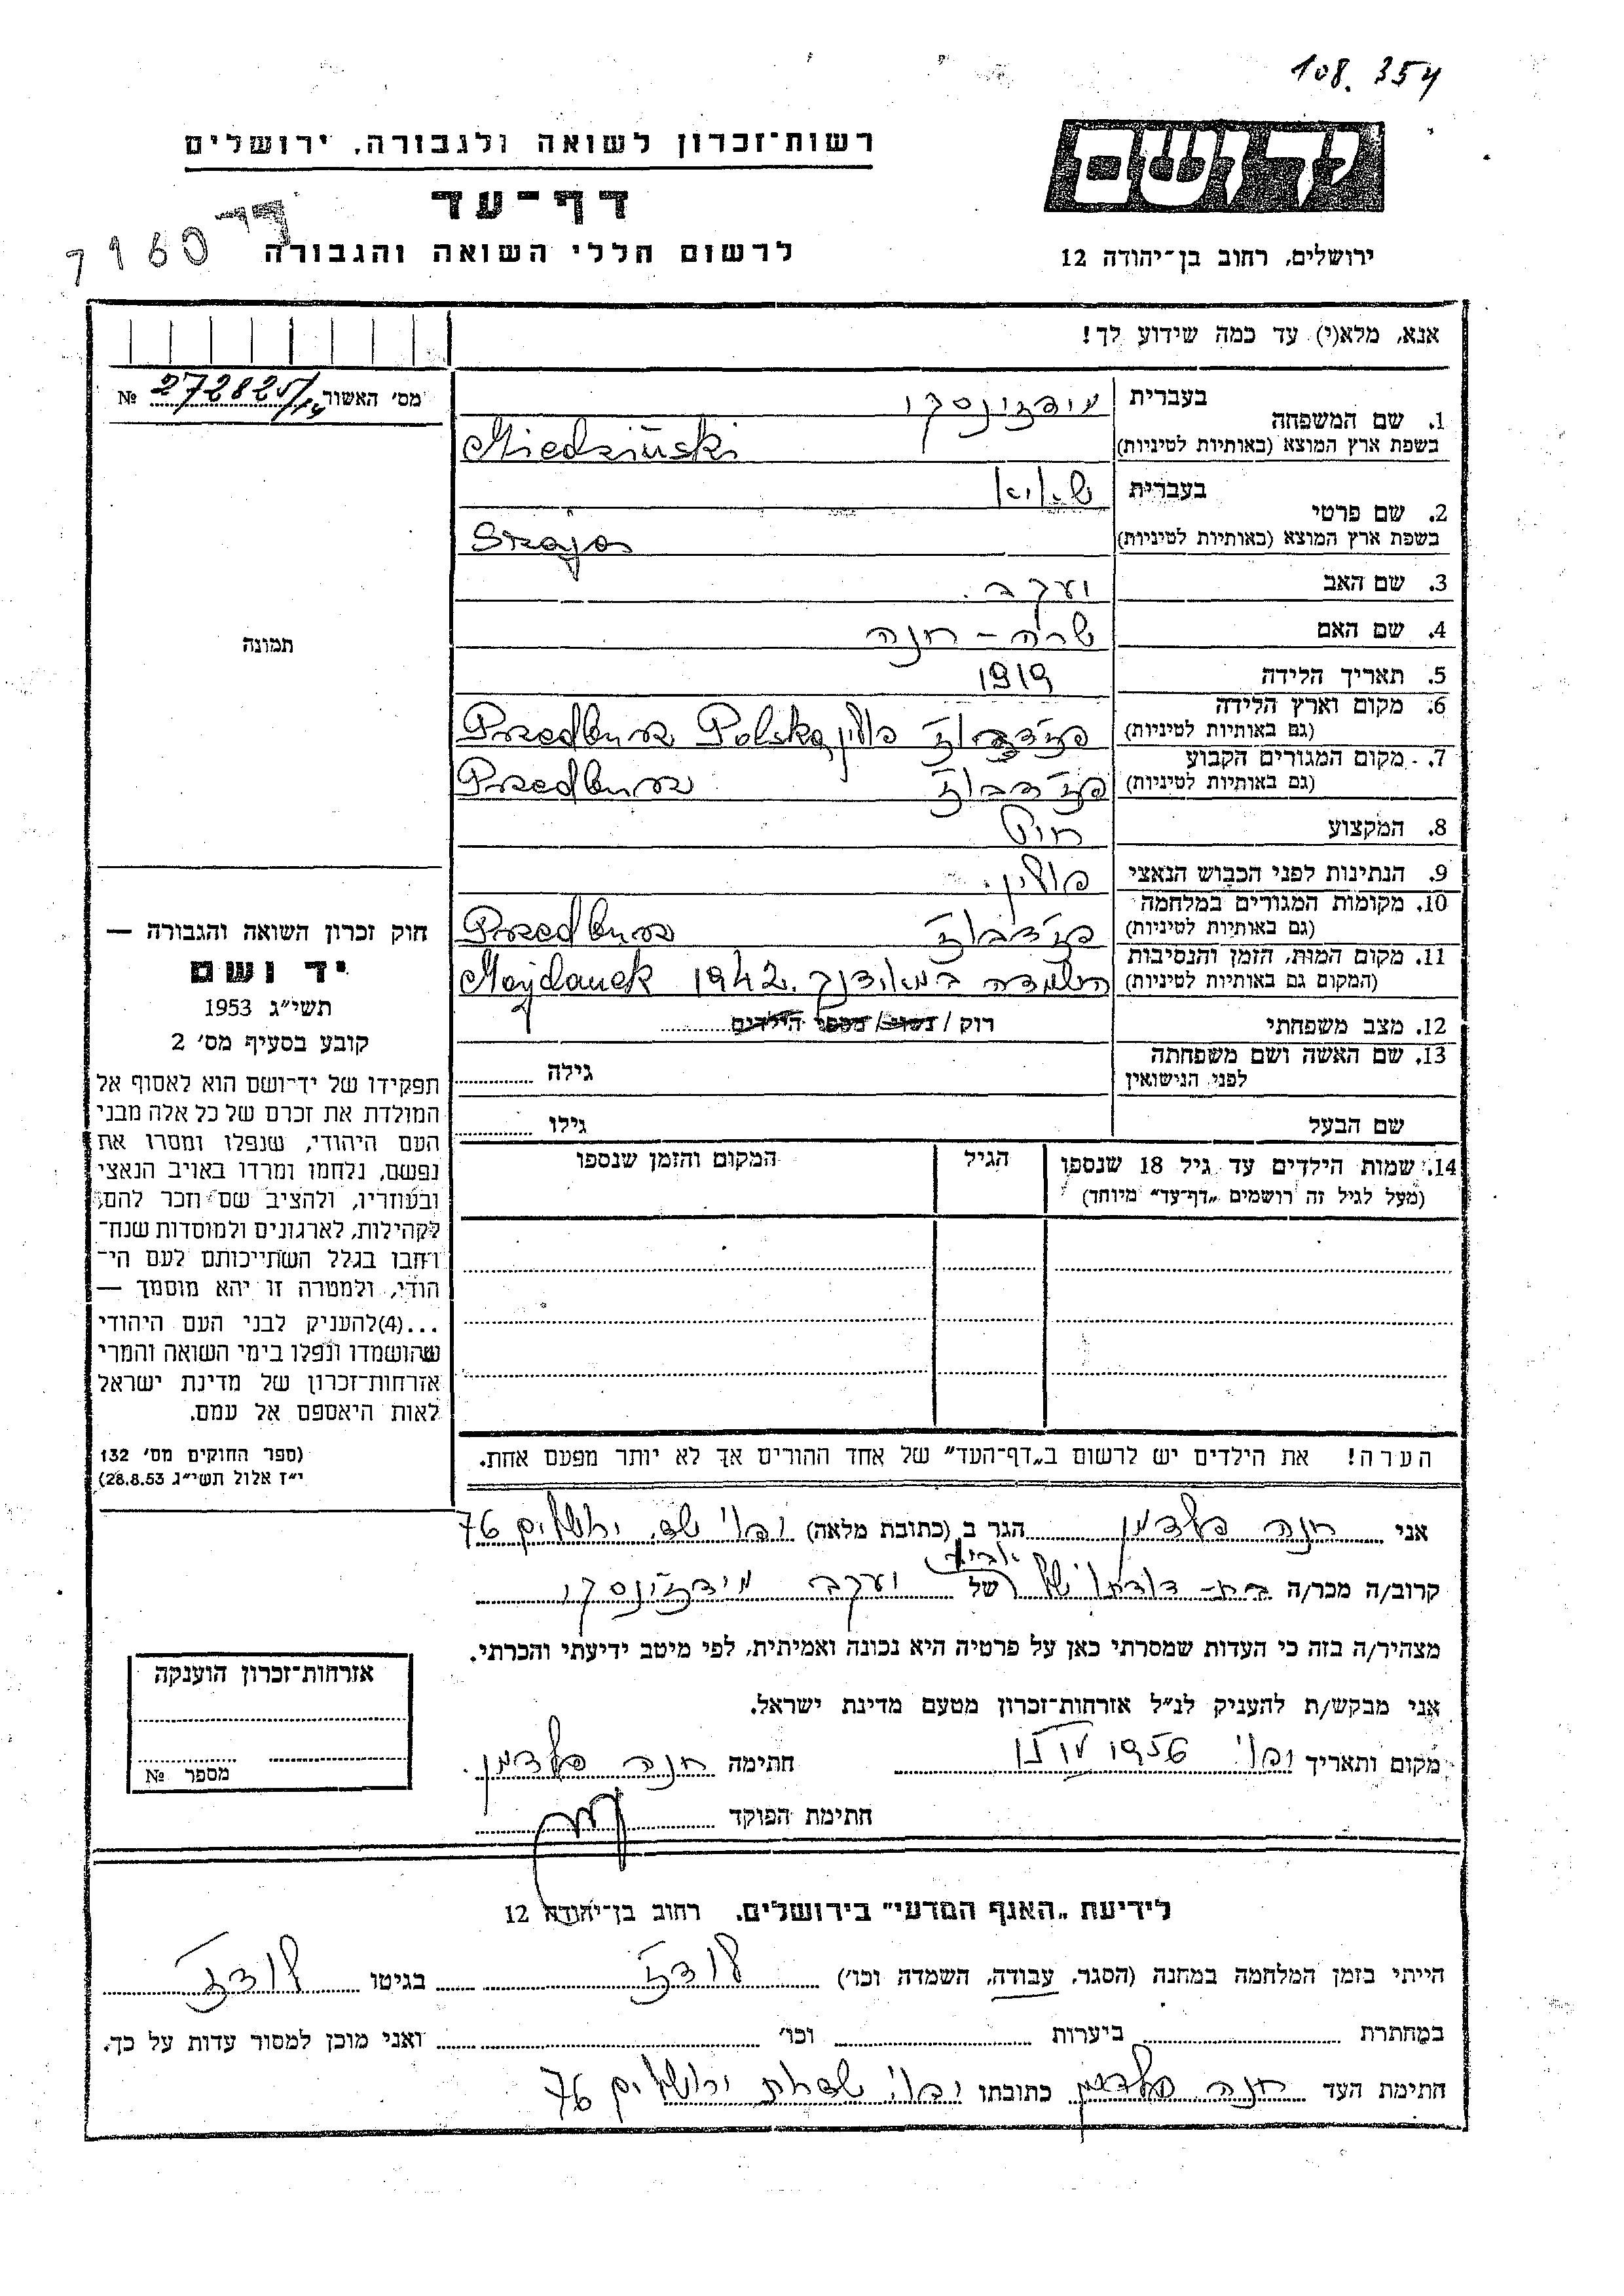 108.354
רשות־זכרון לשואה ולגבורה, ירושלים
יד ושם
דף־עד
לרשום חללי השואה והגבורה
7160
ירושלים, רחוב בן־יהודה 12
אנא, מלא(י) עד כמה שידוע לך!
מס׳ האשור 272825/14 №
1. שם המשפחה
בעברית מידזינסקי
בשפת ארץ המוצא (באותיות לטיניות) Miedziński
2. שם פרטי
בעברית שאיא
בשפת ארץ המוצא (באותיות לטיניות) Szaja
3. שם האב יעקב.
4. שם האם שרה – חנה
תמונה
5. תאריך הלידה 1919
6. מקום וארץ הלידה
(גם באותיות לטיניות) פולין Przedburz Polska
7. מקום המגורים הקבוע
(גם באותיות לטיניות) Przedburz
8. המקצוע חייט
9. הנתינות לפני הכבוש הנאצי פולין.
10. מקומות המגורים במלחמה
(גם באותיות לטיניות) Przedburz
11. מקום המות, הזמן והנסיבות
(המקום גם באותיות לטיניות) השמדה במאידנק. 1942 Majdanek
12. מצב משפחתי רוק / נשוי / מספר הילדים
13. שם האשה ושם משפחתה
לפני הנישואין גילה
שם הבעל גילו
14. שמות הילדים עד גיל 18 שנספו
(מעל לגיל זה רושמים „דף־עד״ מיוחד)
הגיל
המקום והזמן שנספו
חוק זכרון השואה והגבורה —
יד ושם
תשי״ג 1953
קובע בסעיף מס׳ 2
תפקידו של יד־ושם הוא לאסוף אל
המולדת את זכרם של כל אלה מבני
העם היהודי, שנפלו ומסרו את
נפשם, נלחמו ומרדו באויב הנאצי
ובעוזריו, ולהציב שם וזכר להם,
לקהילות, לארגונים ולמוסדות שנח־
רחבו בגלל השתייכותם לעם הי־
הודי, ולמטרה זו יהא מוסמך —
...(4)להעניק לבני העם היהודי
שהושמדו ונפלו בימי השואה והמרי
אזרחות־זכרון של מדינת ישראל
לאות היאספם אל עמם.
(ספר החוקים מס׳ 132
י״ז אלול תשי״ג 28.8.53)
הערה! את הילדים יש לרשום ב„דף־העד״ של אחד ההורים אך לא יותר מפעם אחת.
אני חנה פלדמן הגר ב (כתובת מלאה) יפו שד. ירושלים 76
קרוב/ה מכר/ה בת-דודתו של אביו יעקב מידזינסקי
מצהיר/ה בזה כי העדות שמסרתי כאן על פרטיה היא נכונה ואמיתית, לפי מיטב ידיעתי והכרתי.
אני מבקש/ת להעניק לנ״ל אזרחות־זכרון מטעם מדינת ישראל.
מקום ותאריך יפו 1956 חתימה חנה פלדמן.
חתימת הפוקד
אזרחות־זכרון הוענקה
מספר №
לידיעת „האגף המדעי״ בירושלים. רחוב בן־יהודה 12
הייתי בזמן המלחמה במחנה (הסגר, עבודה, השמדה וכו׳) לודז׳ בגיטו לודז׳
במחתרת ביערות וכו׳ ואני מוכן למסור עדות על כך.
חתימת העד חנה פלדמן כתובתו יפו שדרות ירושלים 76